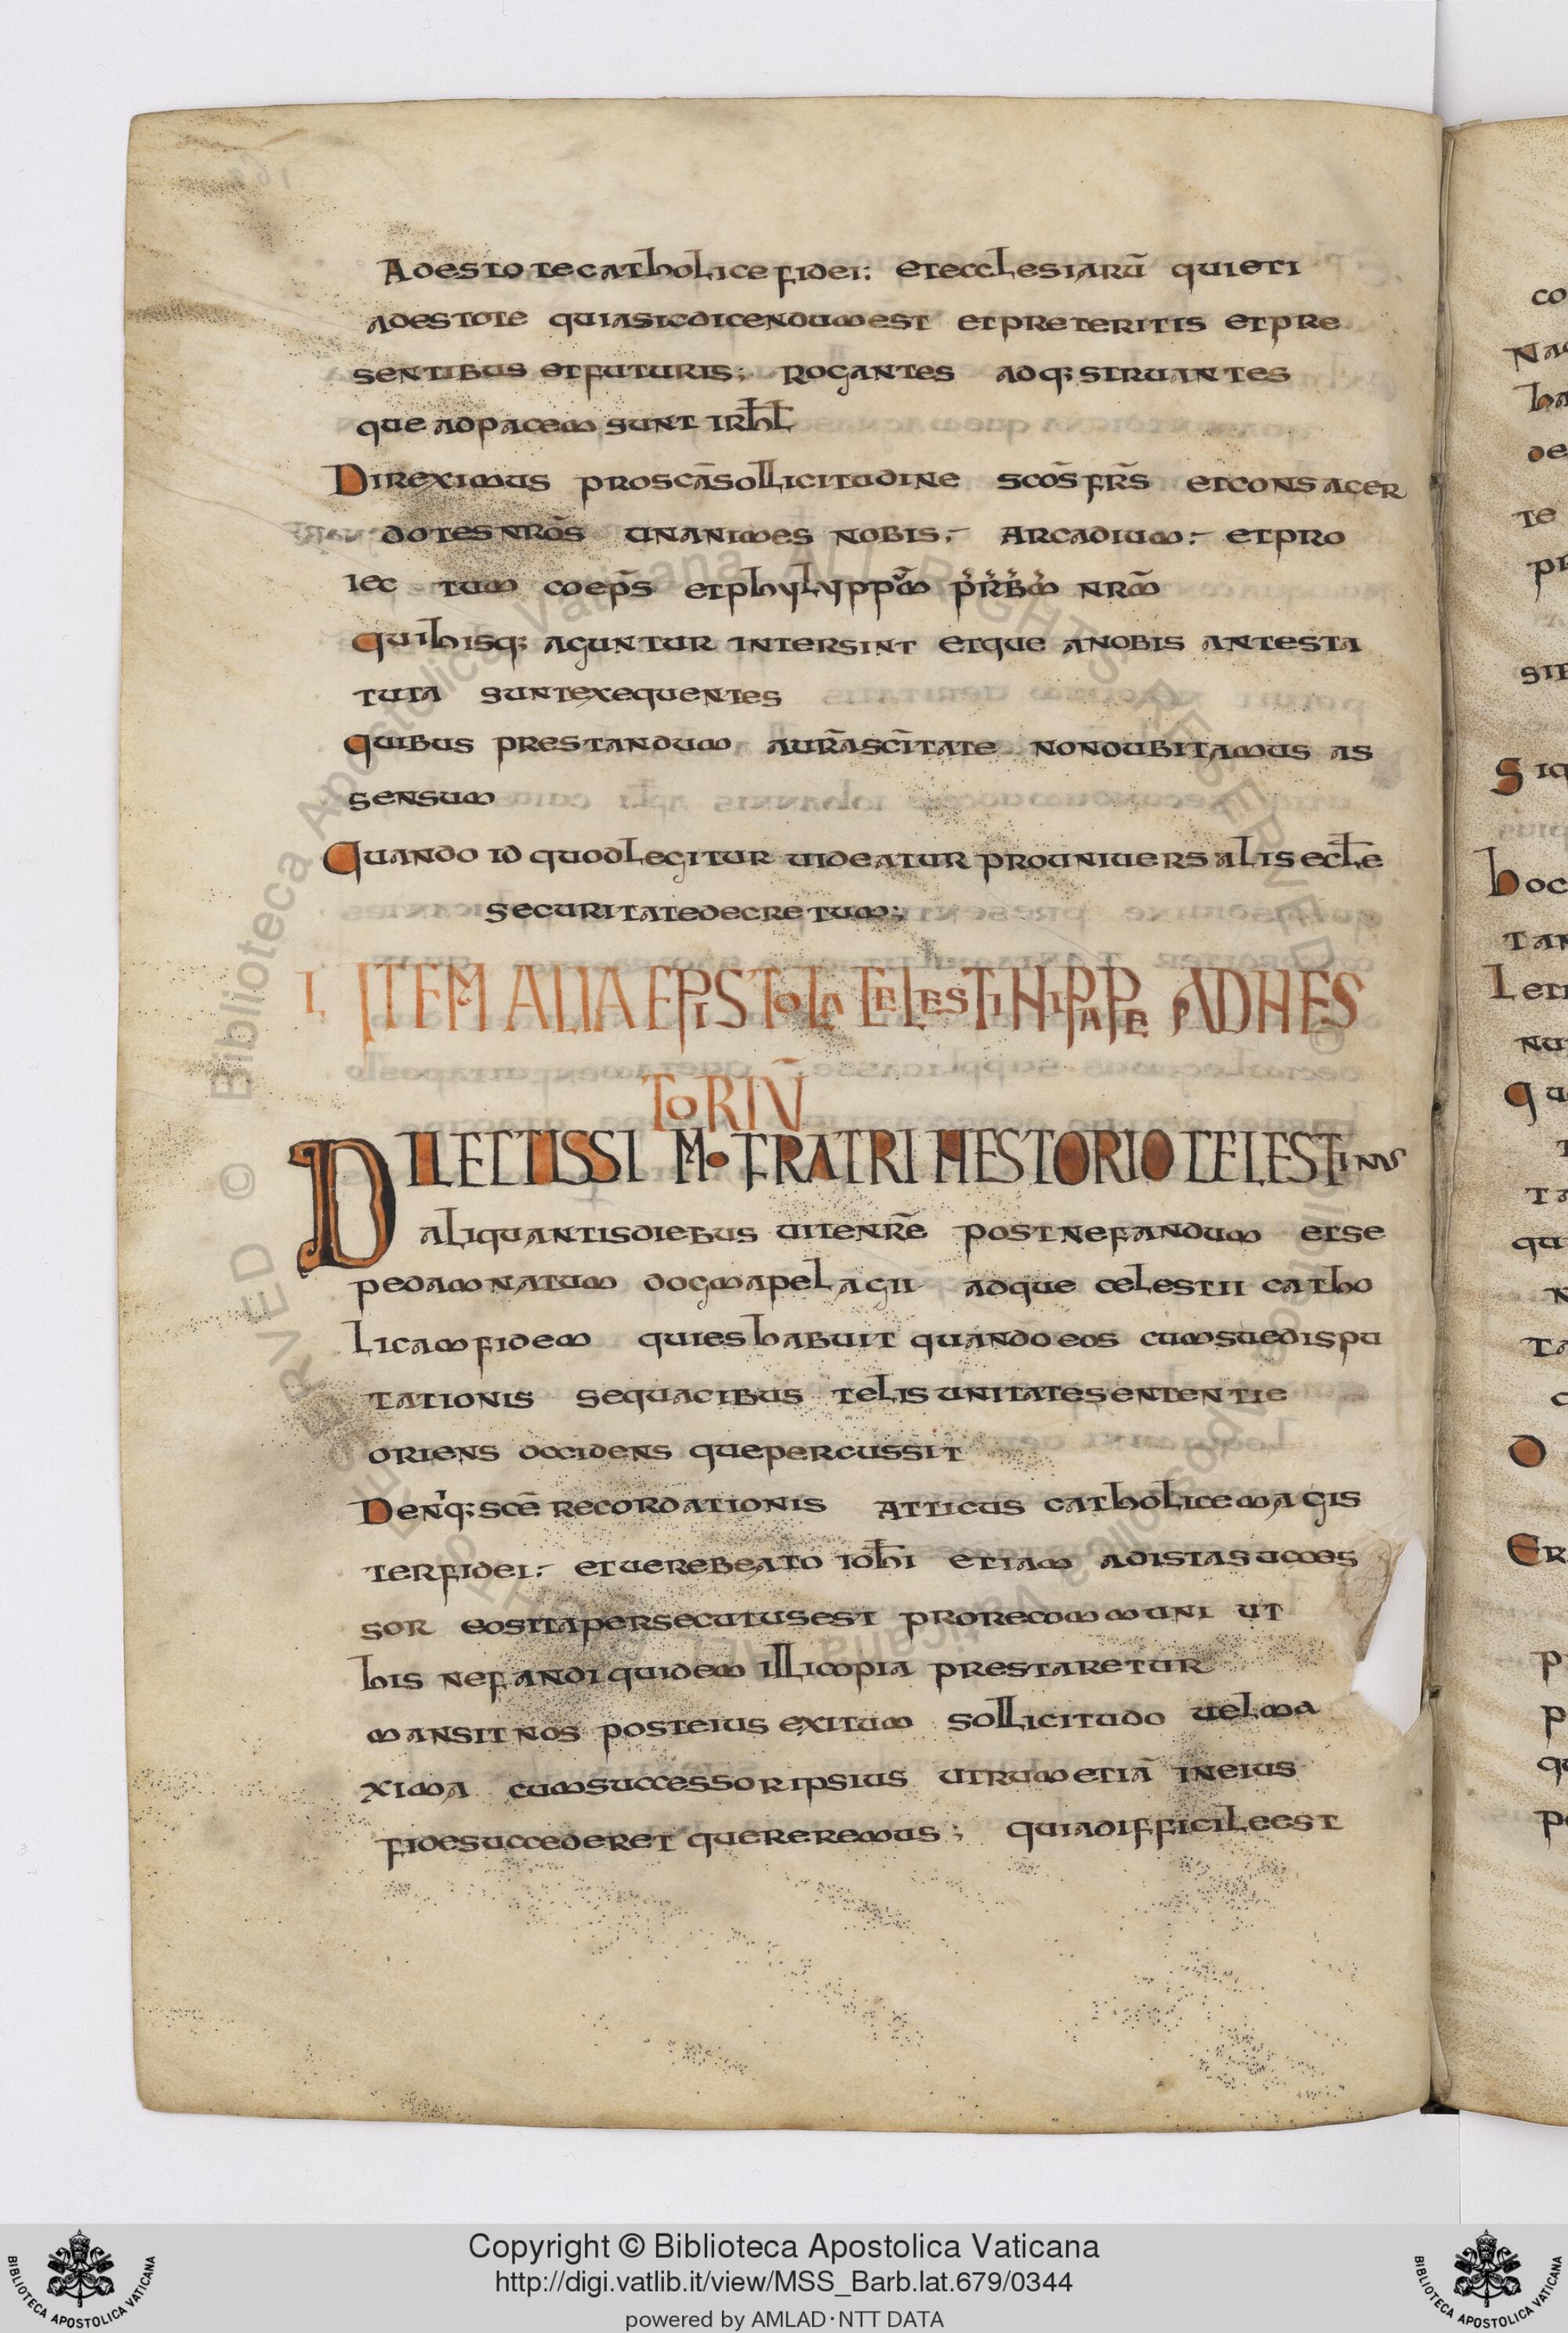 Adestote catholice fidei: et ecclesiarū quieti
adestote quia sic dicendum est et preteritis et pre
sentibus et futuris; rogantes adq; struantes
que ad pacem sunt irhƚ
Direximus pro scā sollicitudine scōs frs̄ et consacer
dotes nrōs unanimes nobis;- arcadium:- et pro
iec tum coeps̄ et phylyppum prb̄m nrm̄
qui hisq; aguntur intersint et que a nobis ante sta
tuta sunt exequentes
quibus prestandum a ur̄a scītate non dubitamus as
sensum
Quando id quod legitur uideatur pro uniuersalis eccƚe
securitate decretum;
L ITEM ALIA EPISTOLA CELESTINI PAPAE AD NES
TORIŪ
DILECTISSIM· FRATRI NESTORIO CELESTINUS
aliquantis diebus uite nrē post nefandum et se
pe damnatum dogma pelagii adque celestii catho
licam fidem quies habuit quando eos cum sue dispu
tationis sequacibus telis unitate sententie
oriens occidens que percussit
Denq; scē recordationis atticus catholice magis
ter fidei:- et uere beato ioh̄i etiam ad ista succes
sor eos ita persecutus est pro re communi ut
his nefandi quidem illi copia prestaretur
mansit nos post eius exitum sollicitudo uel ma
xima cum successor ipsius utrum etiā in eius
fide succederet quereremus; quia difficile est
Copyright © Biblioteca Apostolica Vaticana
http://digi.vatlib.it/view/MSS_Barb.lat.679/0344
powered by AMLAD·NTT DATA
BIBLIOTECA APOSTOLICA VATICANA
BIBLIOTECA APOSTOLICA VATICANA